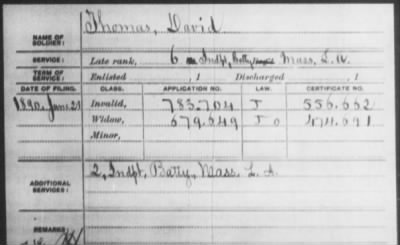 Thomas, David
NAME OF SOLDIER:
SERVICE: Late rank, 6 Indpt, Batty, Mass, L. A.
TERM OF SERVICE: Enlisted , 1 Discharged , 1
DATE OF FILING. CLASS. APPLICATION NO. LAW. CERTIFICATE NO.
1890, June 21 Invalid, 783.704 J 556.662
Widow, 679.649 J 474.691
Minor,
2, Indpt, Batty, Mass, L. A.
ADDITIONAL SERVICES:
REMARKS: